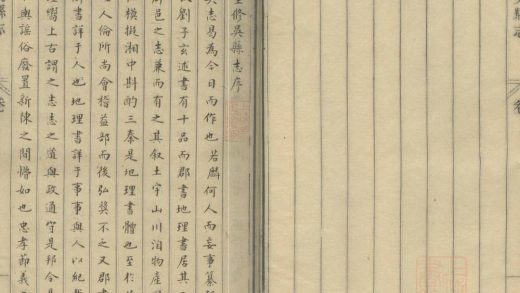 修吳縣志序
志曷為今日而作也若麟何人而妄事纂
劉子玄述書有十品而郡書地理書居其
邑之志兼而有之其叙土宇山川洎物產
模擬湘中斟酌三秦是地理書體也至於
人倫所尚會稽益部而後弘獎不乏又郡
書詳于人也地理書詳于事事與人以紀
嚮上古謂之志志之道與政通守是邦今
輿謠俗廢置新陳之間懵如也忠孝節義
縣志
卷